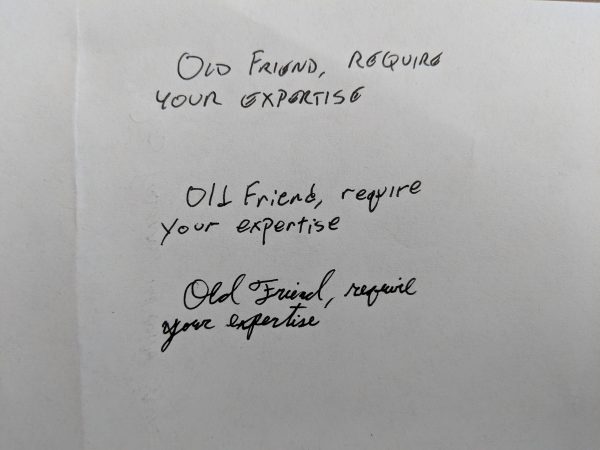 OLD FRIEND, REQUIRE
YOUR EXPERTISE
Old Friend, require
your expertise
Old Friend, require
your expertise